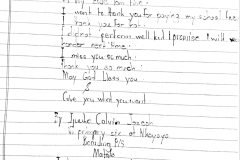 I want to thank you for paying my school fees
thank you for
I did not perform well but I promise I will
next time.
I miss you so much
thank you so much!
May God bless you
&
Give you what you want
By Calvin Joseph
In primary six at
Boarding P/S